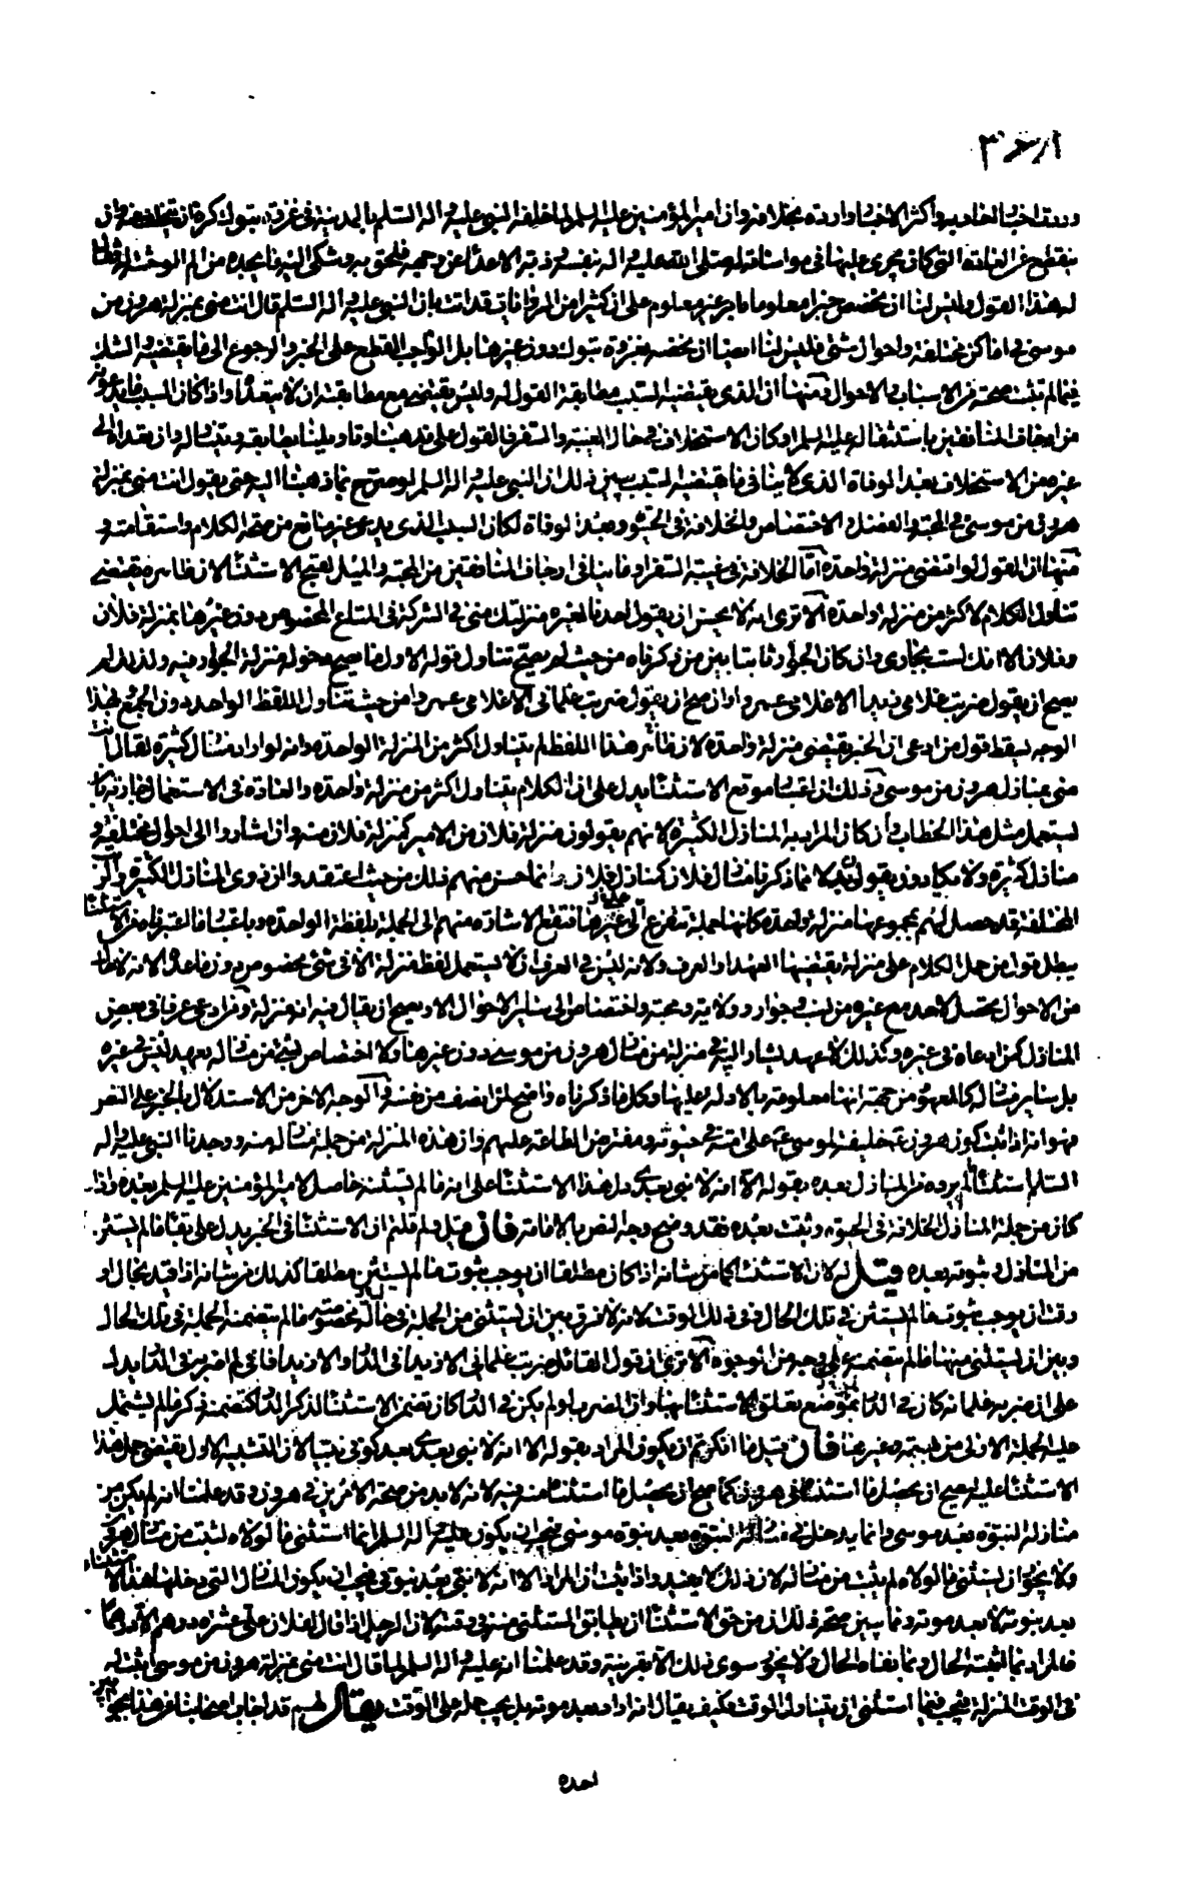 الاخبار واردة بخلافه وان امير المؤمنين عليه السلم لما خلفه النبي عليه واله السلم بالمدينة في غزوة تبوك كره ان يتخلف عنه وان
ينقطع عن العادة التي كان يجري عليها في مواساته له صلى الله عليه واله بنفسه وذبه الاعداء عن وجهه فلحق به وشكى اليه ما يجده من الم الوحشة فقال
له هذا القول وليس لنا ان نخصص خبرا معلوما بامر غير معلوم على ان كثيرا من الروايات قد اتت بان النبي عليه واله السلم قال انت مني بمنزلة هرون من
موسى في اماكن مختلفة واحوال شتى فليس لنا ايضا ان نخصه بغزوة تبوك دون غيرها بل الواجب القطع على الخبر والرجوع الى ما يقتضيه والشك
فيما لم تثبت صحته من الاسباب والاحوال ومنها ان الذي يقتضيه السبب مطابقة القول له وليس يقتضي مع مطابقته ان لا يتعداه واذا كان السبب ما يدعونه
من ارجاف المنافقين باستثقاله عليه السلم او كان الاستخلاف في حال الغيبة والسفر فالقول على مذهبنا وتاويلنا يطابقه ويتناوله وان تعداه الى
غيره من الاستخلاف بعد الوفاة الذي لا ينافي ما يقتضيه السبب يبين ذلك ان النبي عليه واله السلم لو صرح بما ذهبنا اليه حتى يقول انت مني بمنزلة
هرون من موسى في المحبة والفضل والاختصاص والخلافة في الحيوة وبعد الوفاة لكان السبب الذي يدعى غير مانع من صحة الكلام واستقامته و
منها ان القول لو اقتضى منزلة واحدة اما الخلافة في غيبة السفر او ما ينافي ارجاف المنافقين من المحبة والميل لقبح الاستثناء لان ظاهره يقتضي
تناول الكلام لاكثر من منزلة واحدة الا ترى انه لا يحسن ان يقول احدنا لغيره منزلتك مني في الشركة في المتاع المخصوص دون غيرها بمنزلة فلان
من فلان الا انك لست بجاري وان كان الجوار ثابتا بينه وبين من ذكرناه من حيث لم يصح تناول قوله الاول ما يصح دخول منزلة الجوار فيه ولذلك لم
يصح ان يقول ضربت غلامي زيدا الا غلامي عمروا وان صح ان يقول ضربت غلماني الا غلامي عمروا من حيث تناول اللفظ الواحد دون الجمع وبهذا
الوجه يسقط قول من ادعى ان الخبر يقتضي منزلة واحدة لان ظاهر هذا اللفظ لم يتناول اكثر من المنزلة الواحدة وانه لو اراد منازل كثيرة لقال انت
مني بمنازل هرون من موسى وذلك ان اعتبار موقع الاستثناء يدل على ان الكلام يتناول اكثر من منزلة واحدة والعادة في الاستعمال جارية بان
يستعمل مثل هذا الخطاب وان كان المراد به المنازل الكثيرة لانهم يقولون منزلة فلان من الامير كمنزلة فلان منه وان اشاروا الى احوال مختلفة و
منازل كثيرة ولا يكادون يقولون بدلا مما ذكرنا منازل فلان كمنازل فلان وانما حسن منهم ذلك من حيث اعتقدوا ان ذوي المنازل الكثيرة والرتب
المختلفة قد حصل لهم بمجموعها منزلة واحدة كانها جملة تتفرع الى غيرها فتقع الاشارة منهم الى الجملة بلفظة الواحدة وباعتبار ما اعتبرناه من الاستثناء
يبطل قول من حمل الكلام على منزلة يقتضيها العهد او العرف ولانه ليس في العرف ان لا يستعمل لفظ منزلة الا في شئ مخصوص دون ما عداه لانه لا حال
من الاحوال يحصل لاحد مع غيره من نسب وجوار وولاية ومحبة واختصاص الى سائر الاحوال الا ويصح ان يقال فيه انه منزلة ومن ادعى عرفا في بعض
المنازل كمن ادعاه في غيره وكذلك لا عهد يشار اليه في منزلة من منازل هرون من موسى دون غيرها ولا اختصاص لشئ من منازله بعهد ليس في غيره
بل سائر منازله كالمعهود من جهة انها معلومة بالادلة عليها وكل ما ذكرناه واضح لمن انصف من نفسه والوجه الاخر من الاستدلال بالخبر على النص
فهو انه اذا ثبت كون هرون خليفة لموسى على امته في حيوته ومفترض الطاعة عليهم وان هذه المنزلة من جملة منازله منه ووجدنا النبي عليه واله
السلم استثنى ما لم يرده من المنازل بعده بقوله الا انه لا نبي بعدي دل هذا الاستثناء على انه ما لم يستثنه حاصل لامير المؤمنين عليه السلم بعده واذا
كان من جملة المنازل الخلافة في الحيوة وثبتت بعده فقد وضح وجه النص بالامامة فان قيل ولم قلتم ان الاستثناء في الخبر يدل على بقاء ما لم يستثن
من المنازل وثبوته بعده قيل له لان الاستثناء كما من شانه اذا كان مطلقا ان يوجب ثبوت ما لم يستثن مطلقا كذلك من شانه اذا قيد بحال او
وقت ان يوجب ثبوت ما لم يستثن في تلك الحال وفي ذلك الوقت لانه لا فرق بين ان يستثنى من الجملة في حال مخصوص ما لم يتضمنه الجملة في تلك الحال
وبين ان يستثني منها ما لم يتضمنه على وجه من الوجوه الا ترى ان قول القائل ضربت غلماني الا زيدا في الدار والا زيدا فاني لم اضربه في الدار يدل
على ان ضربه غلمانه كان في الدار لموضع تعلق الاستثناء بها وان الضرب لو لم يكن في الدار لكان تضمن الاستثناء لذكر الدار كتضمنه ذكر ما لم يشتمل
عليه الجملة الاولى من بهيمة وغيرها فان قيل ما انكرتم ان يكون المراد بقوله الا انه لا نبي بعدي بعد كوني نبيا لان التشبيه الاول يقتضي حمل هذا
الاستثناء عليه ليصح ان يحصل ما استثناه في هرون كما صح ان يحصل ما استثناه منه فيه لانه لا بد من صحة الامرين في هرون وقد علمنا انه لم يكن من
منازله النبوة بعد موسى وانما يدخل في منازله النبوة بعد نبوة موسى فيجب ان يكون عليه واله السلم انما استثنى ما لولاه لثبت من منازل هرون
ولا يجوز ان يستثني ما لولاه لم يثبت من منازله لان ذلك لا يفيد واذا ثبت ان المراد الا انه لا نبي بعد نبوتي فيجب ان يكون المنازل التي دخلها هذا الاستثناء
بعد نبوته لا بعد موته ومما يبين صحة ذلك ان من حق الاستثناء ان يطابق المستثنى منه في وقته لان الرجل اذا قال لفلان علي عشرة دراهم الا درهما
فالمراد بما اثبته الحال وبما نفاه الحال ولا يجوز سوى ذلك الا بقرينة وقد علمنا انه عليه واله السلم لما قال انت مني بمنزلة هرون من موسى اثبت له
في الوقت المنزلة فيجب فيما استثنى ان يتناول الوقت فكيف يقال انه اراد بعد موته بل يجب حمله على الوقت يقال لهم قد اجاب اصحابنا عن هذا بجوابين
احده